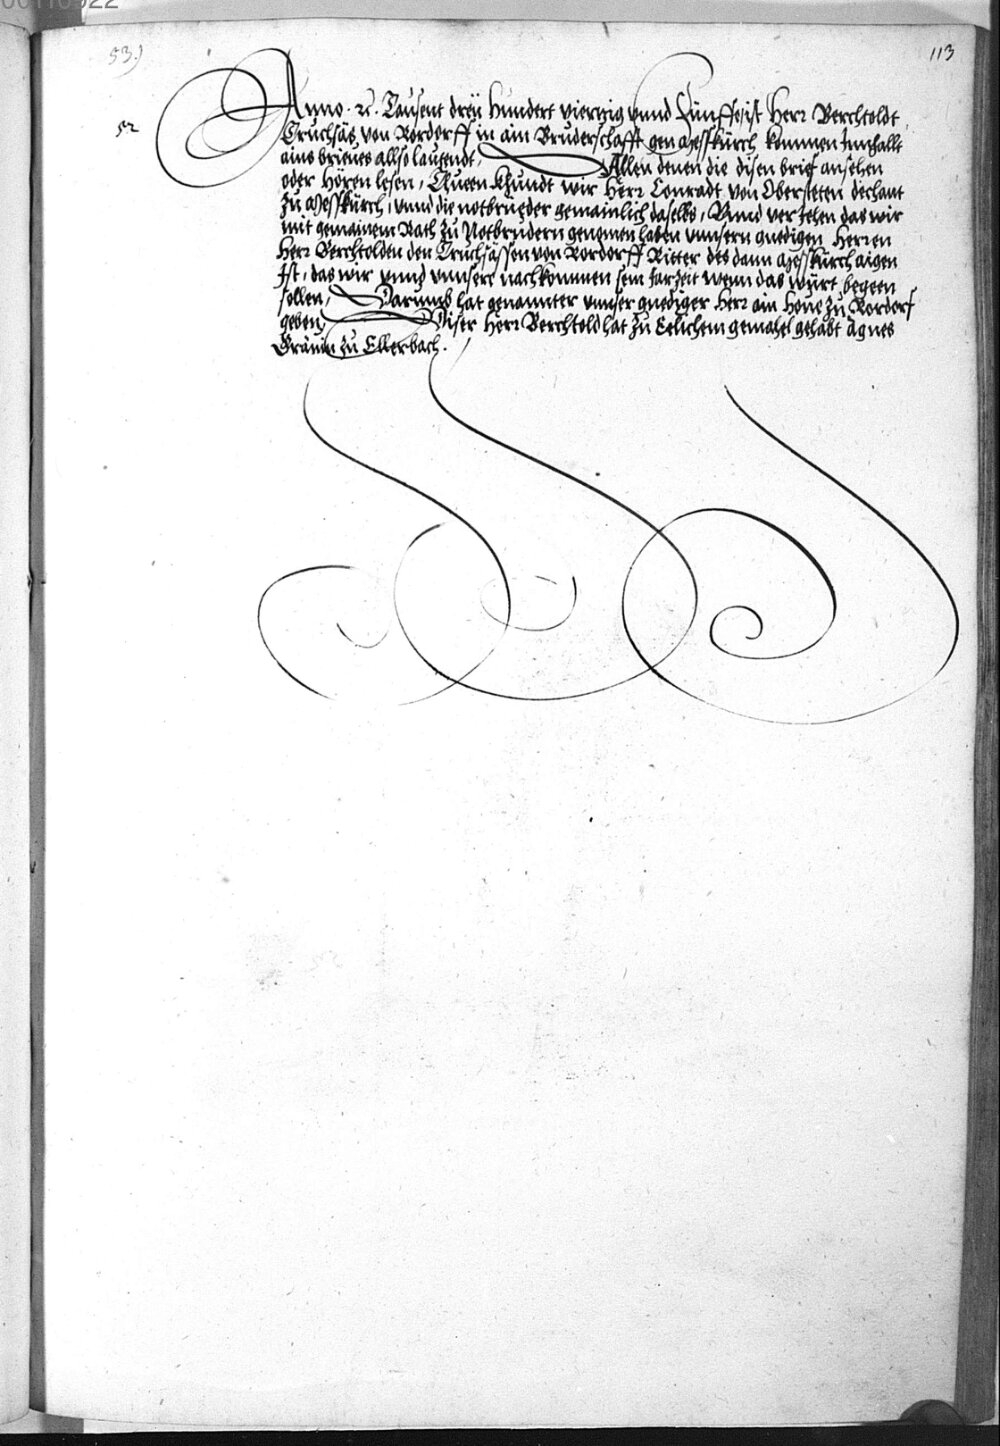 00110922
53.)
113
52
Anno. ꝛc. Tausent dreÿ Hundert vierrzig vnnd Fünffe, ist Herr Berchtoldt
Truchsäs von Rordorff in ain Bruderschafft gen Messkürch kommen Innhallt
ains brieues allso lautendt, Allen denen die disen brief ansehen
oder hören lesen, Khundt wir Herr Conradt von Obersteten dechant
Zu Messkürch, vnnd die notbrüeder gemainlich daselbs, Vnnd veriehen das wir
mit gemainem Rath zu Notbrudern genomen haben vnnsern gnedigen Herren
Herr Berchtolden den Truchsässen von Rordorff Ritter des dann Messkürch aigen
Ist, das wir vnnd vnnsere nachkommen sein Jarzeit wenn das würt, begeen
sollen, Darumb hat genannter vnnser gnediger Herr ain Houe zu Rordorf
geben, Diser Herr Berchtold hat zu Eelichem gemahel gehabt Agnes
Gräuin zu Ellerbach.